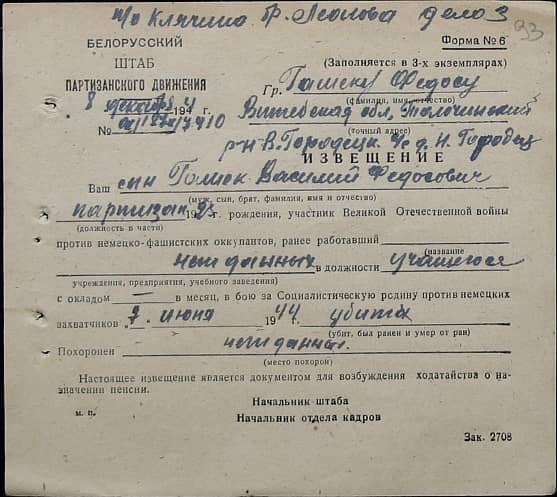 п/о Клячино бр. Леонова дело 3
93
БЕЛОРУССКИЙ
ШТАБ
ПАРТИЗАНСКОГО ДВИЖЕНИЯ
8 декабря 1944 г.
№
Форма № 6
(Заполняется в 3-х экземплярах)
Гр. Гашек Федосу
(фамилия, имя, отчество)
Витебская обл, Толочинский
(точный адрес)
р-н В. Городецк. с/с д. Н. Городец
ИЗВЕЩЕНИЕ
Ваш сын Гашек Василий Федосович
(муж, сын, брат, фамилия, имя и отчество)
партизан 192 г. рождения, участник Великой Отечественной войны
(должность в части)
против немецко-фашистских оккупантов, ранее работавший
(название
нет данных в должности учащегося
учреждения, предприятия, учебного заведения)
с окладом — в месяц, в бою за Социалистическую родину против немецких
захватчиков 7. июня 1944 г. убит
(убит, был ранен и умер от ран)
Похоронен нет данных.
(место похорон)
Настоящее извещение является документом для возбуждения ходатайства о на-
значении пенсии.
Начальник штаба
м. п.
Начальник отдела кадров
Зак. 2708